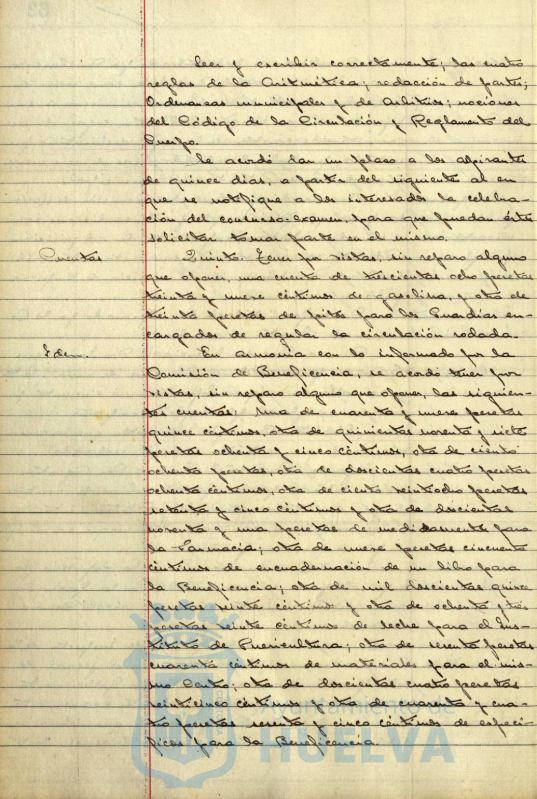 leer y escribir correctamente; las cuatro
reglas de la Aritmética; redacción de partes;
Ordenanzas municipales y de Arbitrios; nociones
del Código de la Circulación y Reglamento del
Cuerpo.
Se acordó dar un plazo a los aspirantes
de quince días, a partir del siguiente al en
que se notifique a los interesados la celebra-
ción del concurso-examen, para que puedan éstos
solicitar tomar parte en el mismo.
Cuentas
Quinto. Tener por vistas, sin reparo alguno
que oponer, una cuenta de trescientas ocho pesetas
treinta y nueve céntimos de gasolina, y otra de
treinta pesetas de pitos para los Guardias en-
cargados de regular la circulación rodada.
Idem.
En armonía con lo informado por la
Comisión de Beneficencia, se acordó tener por
vistas, sin reparo alguno que oponer, las siguien-
tes cuentas: Una de cuarenta y nueve pesetas
quince céntimos, otra de quinientas noventa y siete
pesetas ochenta y cinco céntimos, otra de ciento
ochenta pesetas, otra de doscientas cuatro pesetas
ochenta céntimos, otra de ciento veintiocho pesetas
setenta y cinco céntimos y otra de doscientas
noventa y una pesetas de medicamentos para
la Farmacia; otra de nueve pesetas cincuenta
céntimos de encuadernación de un libro para
la Beneficencia; otra de mil doscientas quince
pesetas veinte céntimos y otra de ochenta y tres
pesetas veinte céntimos de leche para el Ins-
tituto de Puericultura; otra de sesenta pesetas
cuarenta céntimos de materiales para el mis-
mo Centro; otra de doscientas cuatro pesetas
veinticinco céntimos y otra de cuarenta y cua-
tro pesetas sesenta y cinco céntimos de especí-
ficos para la Beneficencia.
Ayuntamiento de
HUELVA